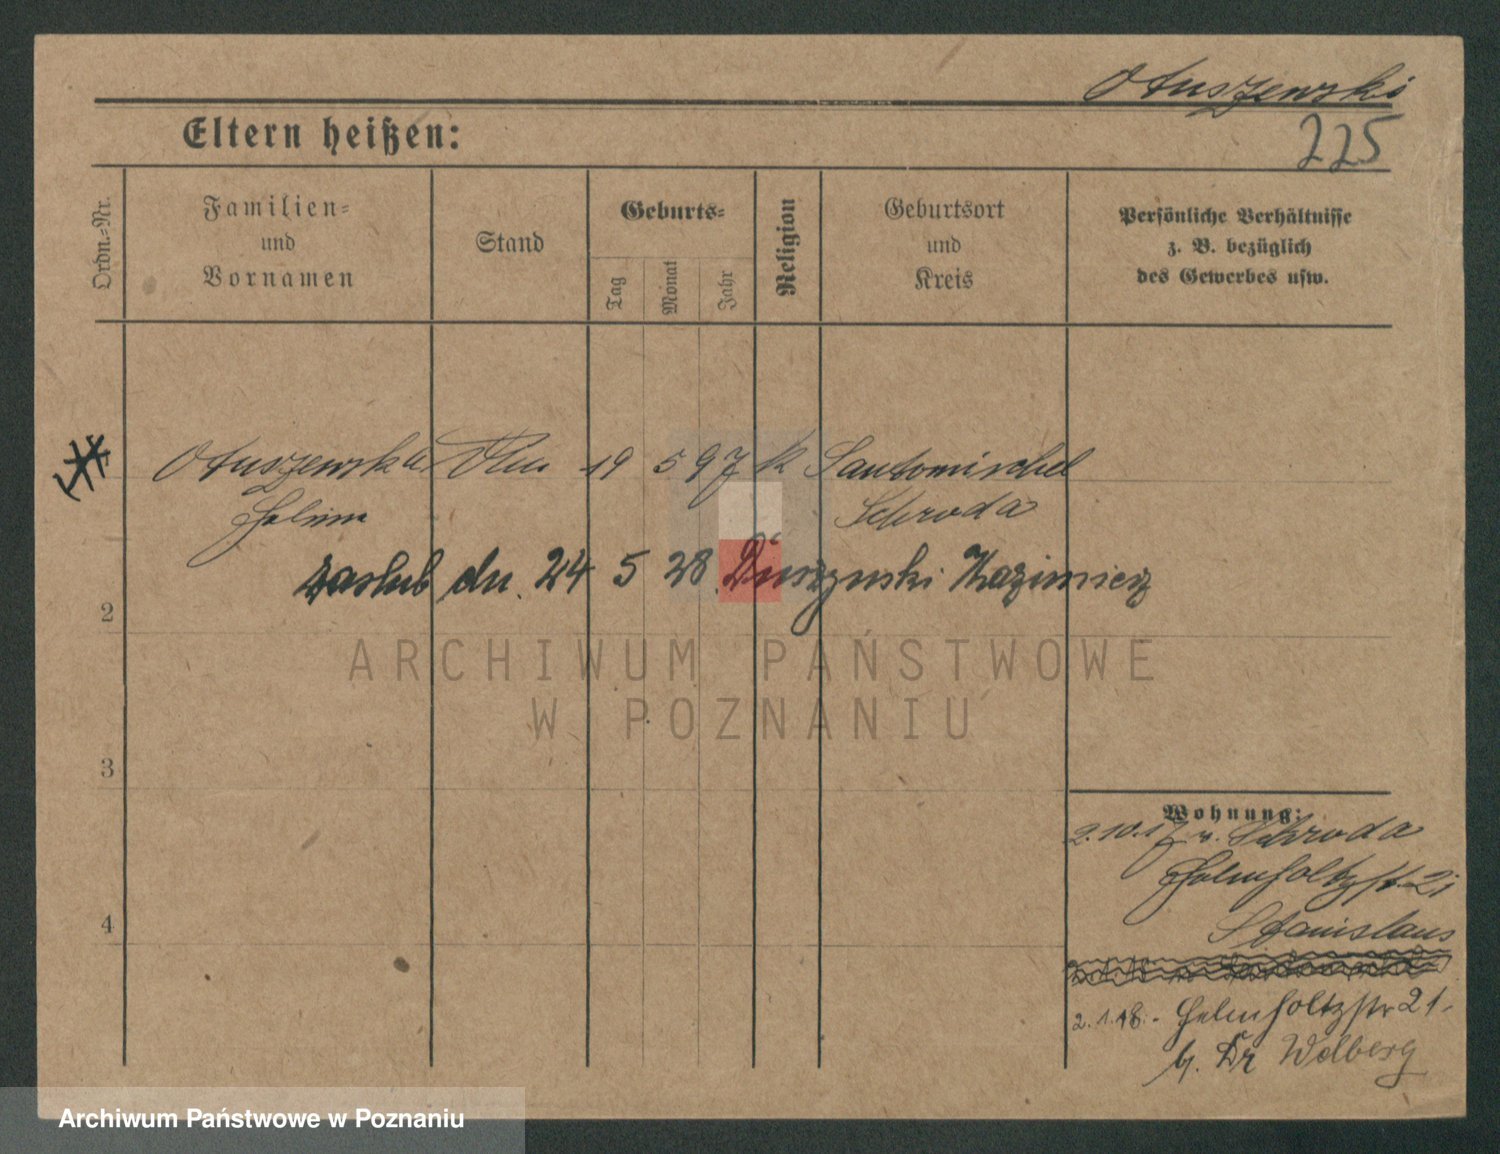 Otuszewski
225
Eltern heißen:
Ordn.-Nr.
Familien-
und
Vornamen
Stand
Geburts-
Tag
Monat
Jahr
Religion
Geburtsort
und
Kreis
Persönliche Verhältnisse
z. B. bezüglich
des Gewerbes usw.
Otuszewska 19 5 97 k Santomischel
Schroda
zaslub dn. 24 5 28 Duszynski Kazimierz
2
ARCHIWUM PAŃSTWOWE
W POZNANIU
3
Wohnung:
2.10.17 v. Schroda
Helmholtzstr. 21
Stanislaus
4
2.1.18. Helmholtzstr 21.
b. Dr Wolberg
Archiwum Państwowe w Poznaniu